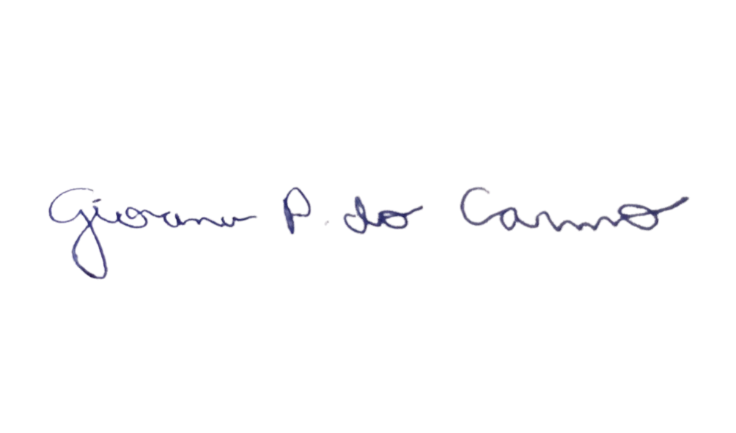 Giovana P. do Carmo